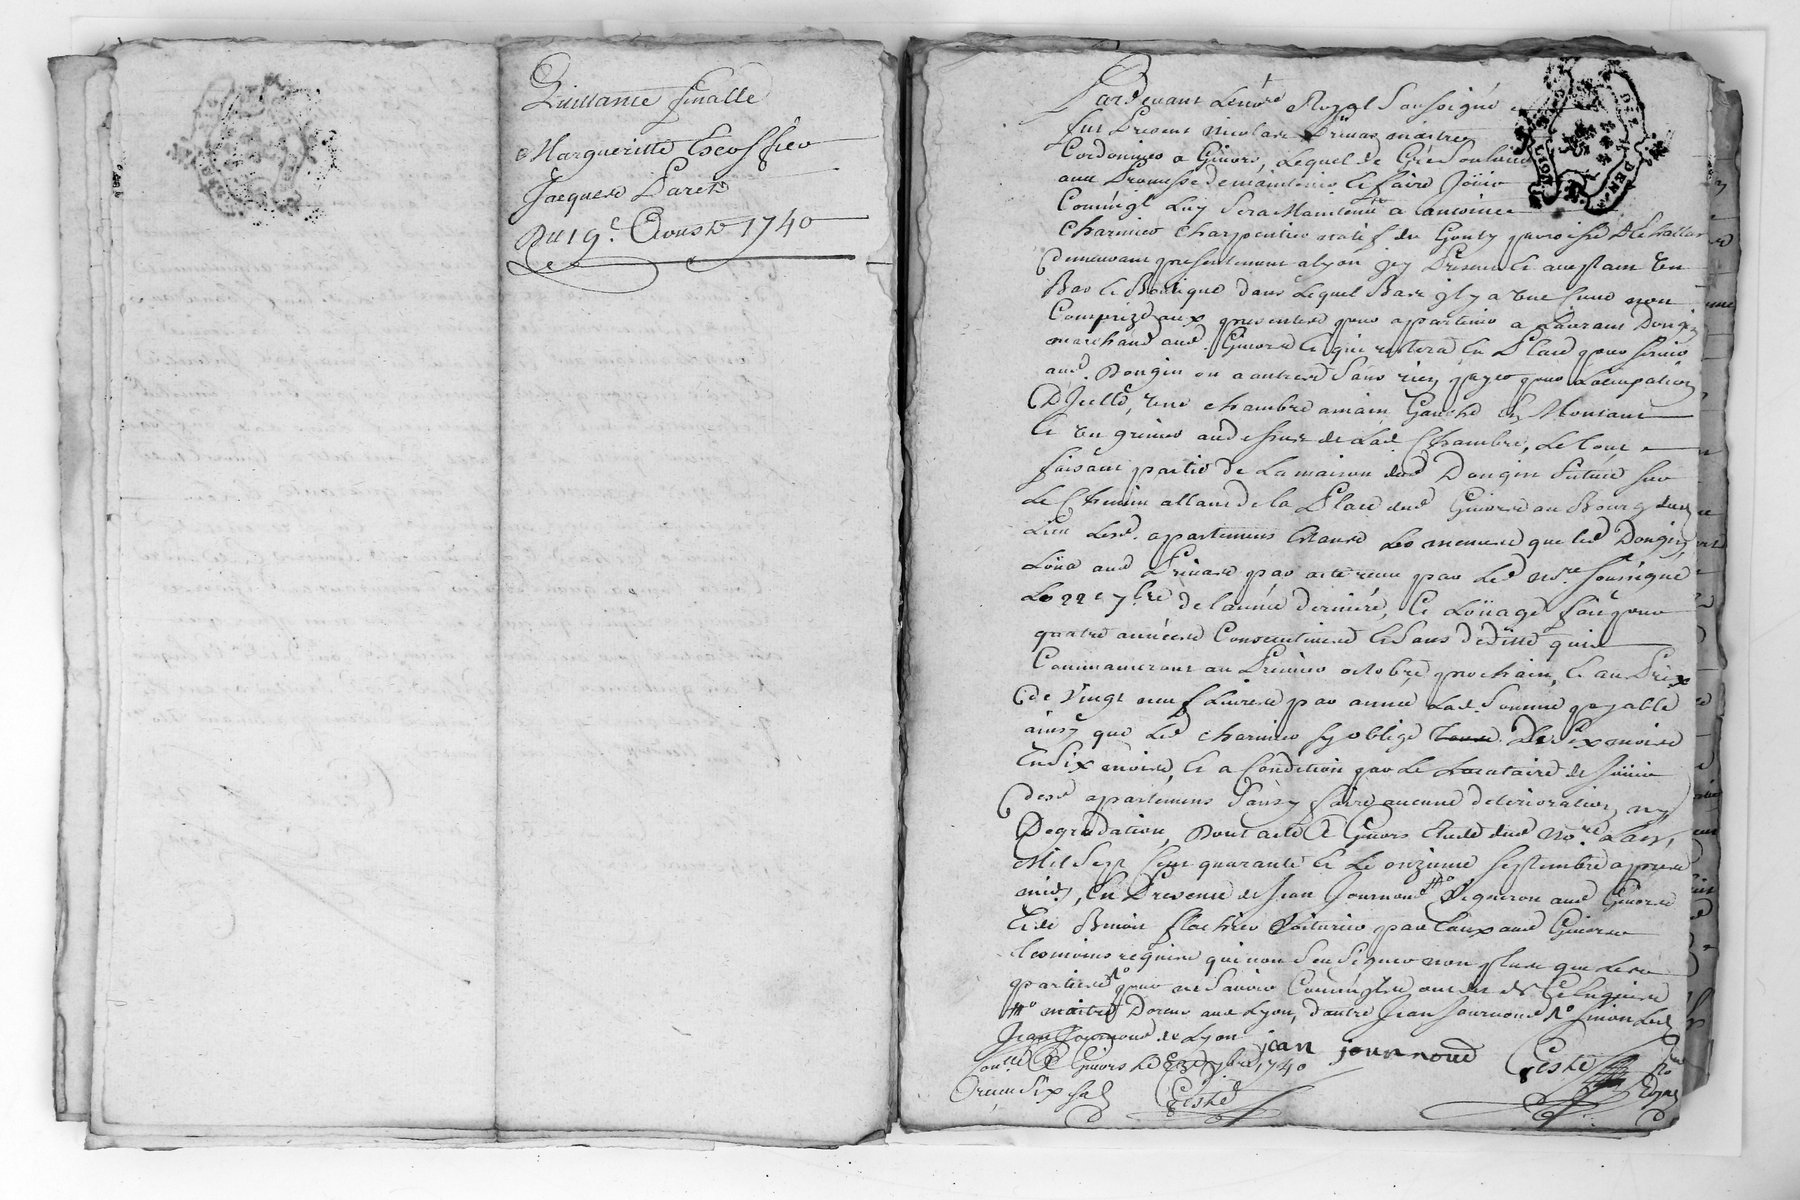 Quittance finalle
Margueritte Escoffier
Jacques Paret
Du 19e. Aoust 1740
Pardevant Le no.re Royal Soussigné
fut Present nicolas Prinas maistre
Cordonnier a Givors, Lequel de Gré
aux Promesse de maintenir et faire Joüir
Comm'il Luy Sera Maintenu a antoine
charmier charpentier natif du
demeurant presentement a Lyon jcy Present et acceptant un
Bas et Boutique dans Lequel Bas jl y a une
Comprize aux presentes pour apartenir a Laurans Dongin
marchand aud. Givors et qui restera en Place pour servir
aud. Dongin ou a autres Sans rien payer pour L'occupation
D'Jcelle, une chambre a main Gauche en Montant
et un grenier audessus de Lad. Chambre, Le tout
faisant partie de La maison dud. Dongin Scituée sur
Le Chemin allant de la Place dud. Givors au Bourg dud.
Lieu Lesd. apartemens Estant Les mesmes que led. Dongin
Loüa aud. Prinas par acte reçu par Led. no.re soussigné
Le 22e 7bre de l'année derniere, Ce Loüage fait pour
quatre années Consecutives et Sans déditte qui
Commanceront au Premier octobre prochain, et au Prix
de Vingt neuf Livres par année Lad. Somme payable
ainsy que Led. charmier s'y oblige De Six mois
En Six mois, et a Condition par Le Locataire de Joüir
desd. apartemens Sans y faire aucune deterioration ny
Degradation, Dont acte A Givors Etude dud. No.re L'an
Mil Sept Cent quarante et Le onzieme Septembre apres
midy, En Presence de Jean Journoud Vigneron aud. Givors
Et de Benoit flachier Voiturier par Eaux aud. Givors
temoins requis qui n'ont Sçu Signer non plus que Les
parties pour ne Sçavoir Comm'ils ont dit de Ce Enquis
maitre Doreur aud. Lyon, d'autre Jean Journoud
Jean Journoud de Lyon
jean journoud
Ceste
no.re
Royal
Con.lé A Givors Le 7bre 1740
Reçu Six sols
Ceste